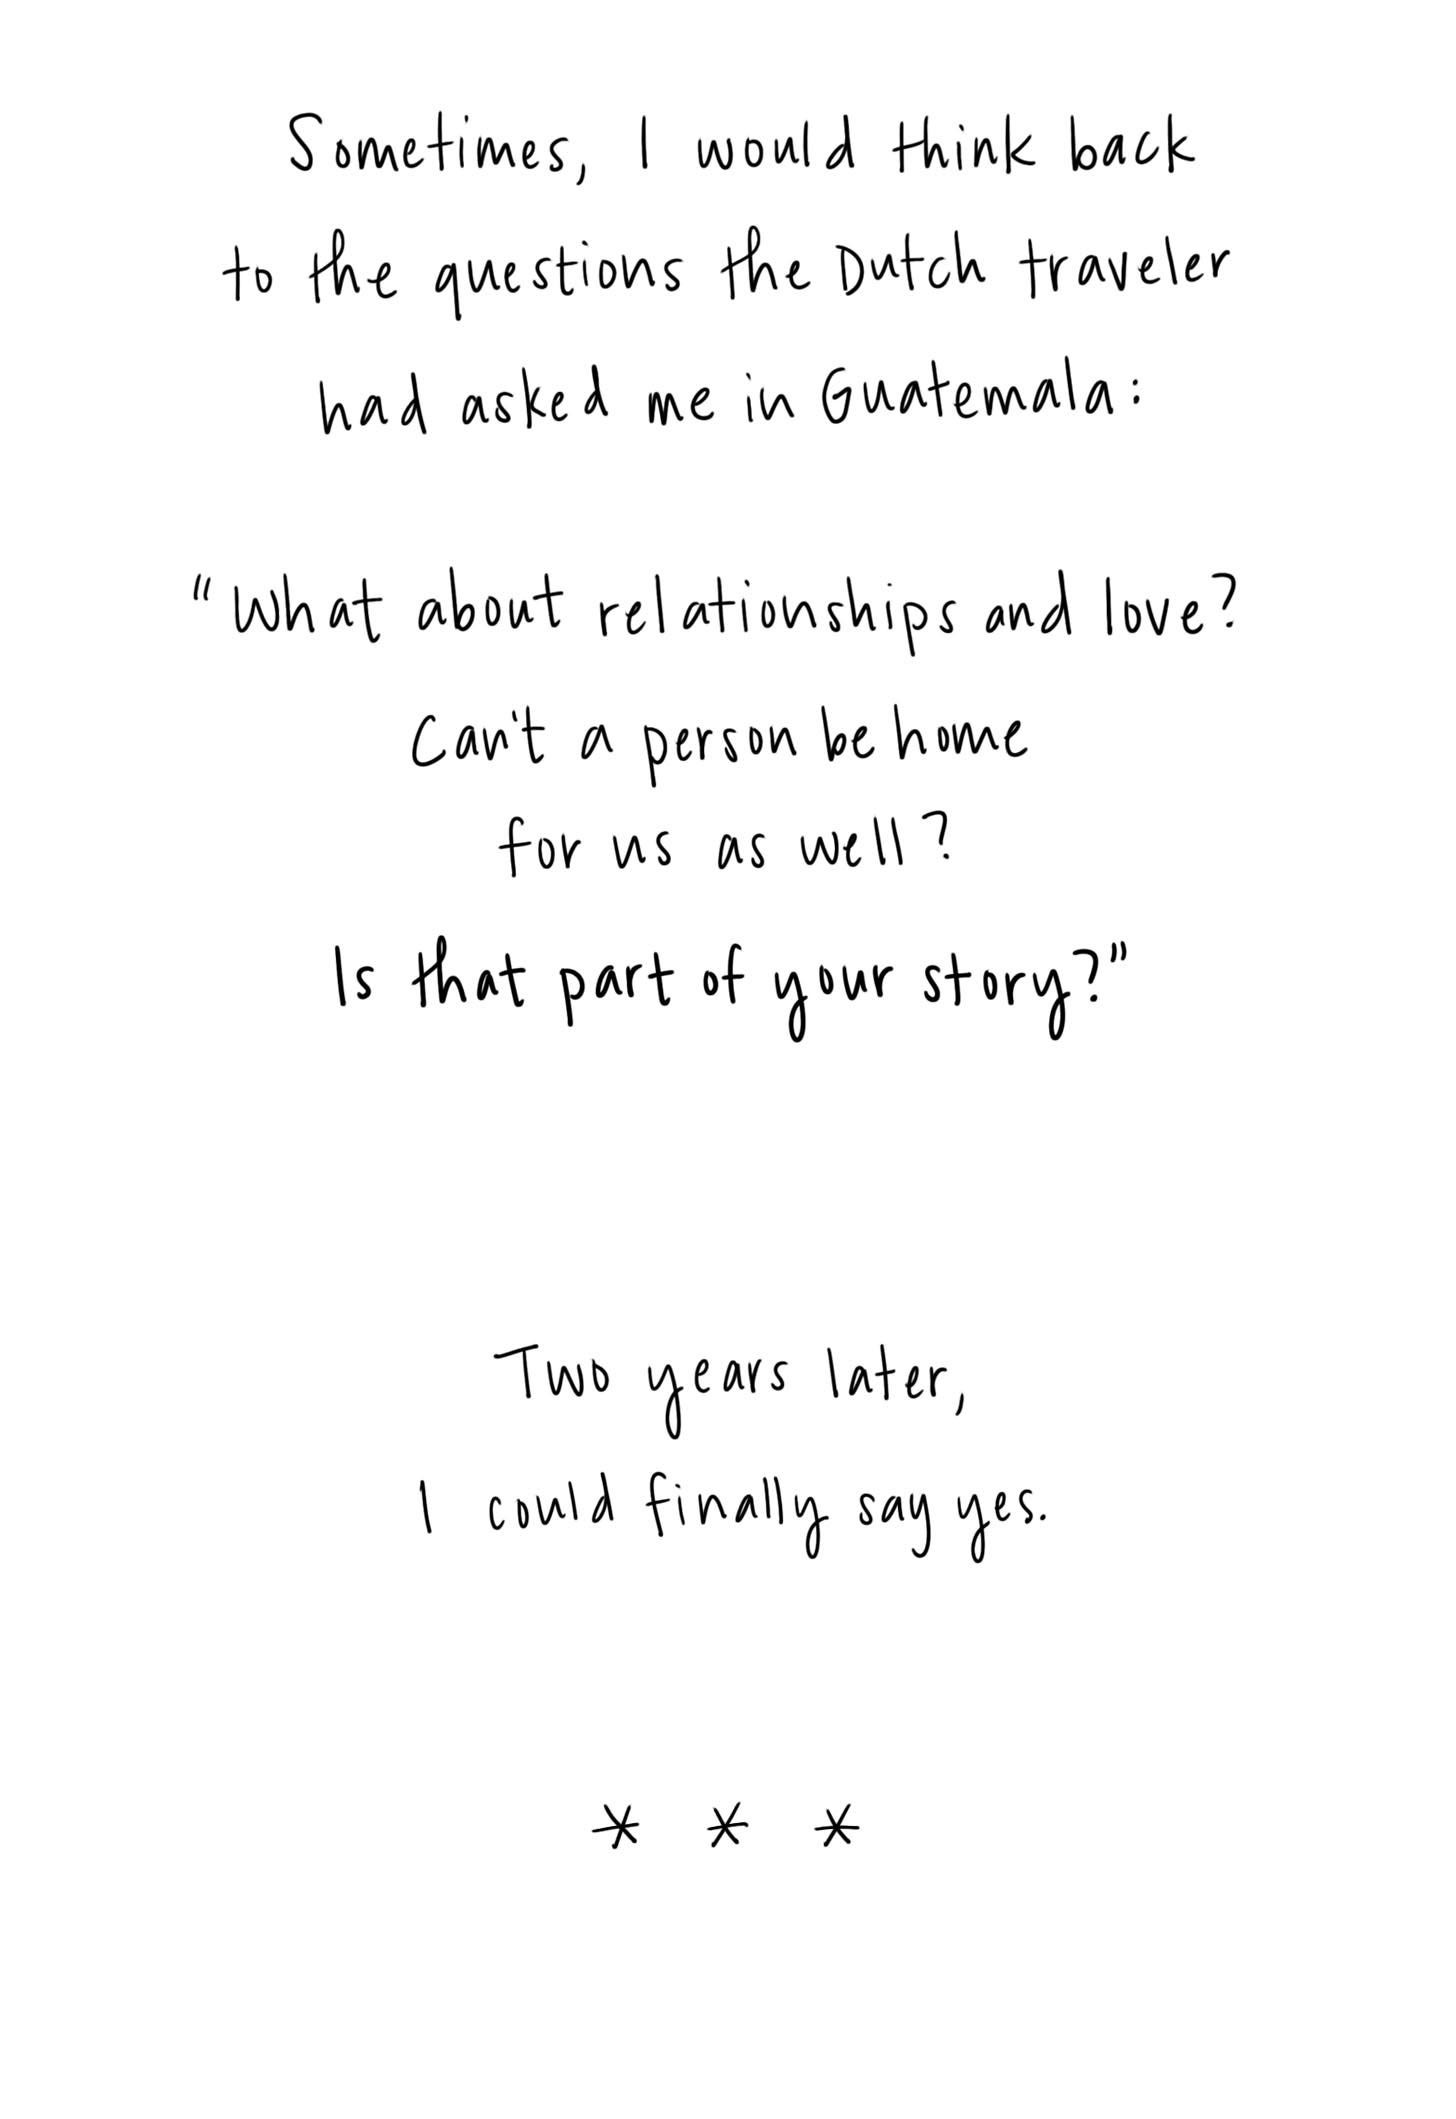 Sometimes, I would think back
to the questions the Dutch traveler
had asked me in Guatemala:
"What about relationships and love?
Can't a person be home
for us as well?
Is that part of your story?"
Two years later,
I could finally say yes.
* * *